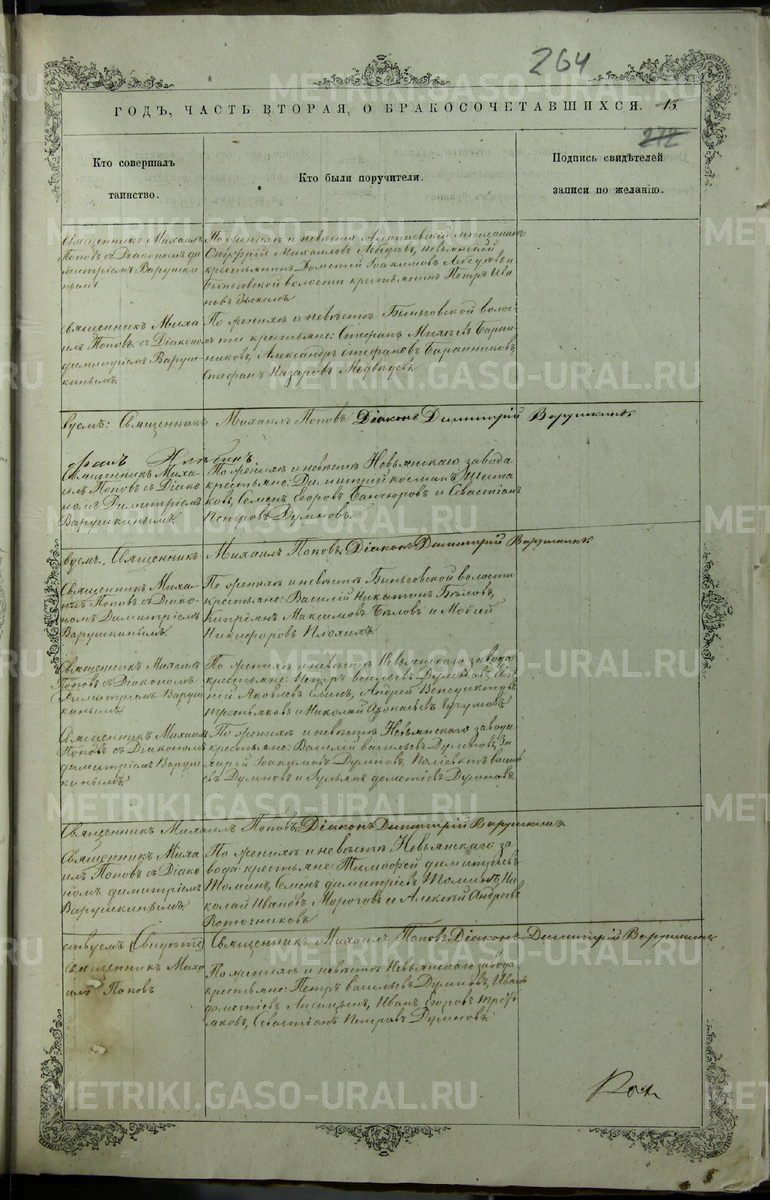 264
ГОДЪ, ЧАСТЬ ВТОРАЯ, О БРАКОСОЧЕТАВШИХСЯ. 15
272
Кто совершалъ таинство.
Кто были поручители.
Подпись свидѣтелей записи по желанію.
Священникъ Михаилъ
Поповъ съ Діакономъ Ди
митріемъ Варушки
нымъ
По женихѣ и невѣстѣ Алапаевскій мѣщанинъ
Михаиловъ невьянскій
крестьянинъ Дометій Іоакимовъ и
Быньговской волости крестьянинъ Петръ Ива
новъ
Священникъ Миха
илъ Поповъ съ Діаконо
мъ Димитріемъ Вару
шкинымъ
По женихѣ и невѣстѣ Быньговской воло
сти крестьяне: Стефанъ Баран
никовъ, Александръ Стефановъ Баранниковъ
Стефанъ Назаровъ Медведевъ
вуемъ: Священникъ Михаилъ Поповъ Діаконъ Димитрій Варушкинъ
Священникъ Миха
илъ Поповъ съ Діако
номъ Димитріемъ
Варушкинымъ
По женихѣ и невѣстѣ Невьянскаго завода
крестьяне: Димитрій Козминъ Шеста
ковъ, Семенъ Егоровъ и Севастіанъ
Петровъ Думновъ.
вуемъ. Священникъ Михаилъ Поповъ Діаконъ Димитрій Варушкинъ
Священникъ Миха
илъ Поповъ съ Діако
номъ Димитріемъ
Варушкинымъ
По женихѣ и невѣстѣ Быньговской волости
крестьяне: Василій Никитинъ Бѣловъ,
Кипріянъ Максимовъ Бѣловъ и
Никифоровъ Плохихъ.
Священникъ Михаилъ
Поповъ съ Діакономъ
Димитріемъ Вару
шкинымъ
По женихѣ и невѣстѣ Невьянскаго завода
крестьяне: Петръ Думновъ,
Яковлевъ Андрей Венедиктовъ
Третьяковъ и Николай
Священникъ Михаилъ
Поповъ съ Діакономъ
Димитріемъ Вару
шкинымъ
По женихѣ и невѣстѣ Невьянскаго завода
крестьяне: Василій Васильевъ Думновъ, За
харій Іоакимовъ Думновъ, Василь
евъ Думновъ и Дометіевъ Думновъ
Священникъ Михаилъ Поповъ Діаконъ Димитрій Варушкинъ
Священникъ Миха
илъ Поповъ съ Діако
номъ Димитріемъ
Варушкинымъ
По женихѣ и невѣстѣ Невьянскаго за
вода крестьяне: Тимофей Димитріевъ
Толминъ, Семенъ Димитріевъ Ни
колай Ивановъ Морозовъ и Алексій Андреевъ
ствуемъ Священникъ Михаилъ Поповъ Діаконъ Димитрій Варушкинъ
Священникъ Миха
илъ Поповъ
По женихѣ и невѣстѣ Невьянскаго завода
крестьяне: Петръ Васильевъ Думновъ, Иванъ
Дометіевъ Иванъ Егоровъ Треть
яковъ, Севастіанъ Петровъ Думновъ
METRIKI.GASO-URAL.RU